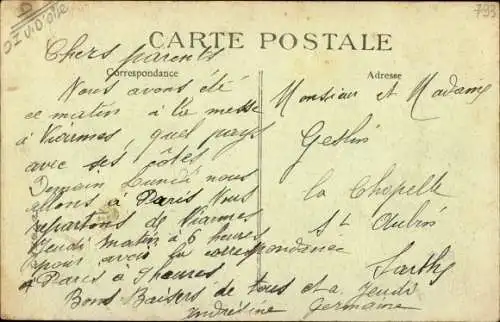 D
S.I.V. D'oise
793
CARTE POSTALE
Correspondance
Adresse
Chers parents
Nous avons été
ce matin à la messe
à Viarmes, quel pays
avec ses côtes
Demain Lundi nous
allons à Paris Nous
repartons de Viarmes
Jeudi matin à 6 heures
pour avoir la correspondance
à Paris à 9 heures
Bons Baisers de tous et a Jeudi
andréline Germaine
Monsieur et Madame
Geslin
La Chapelle
St Aubin
Sarthe